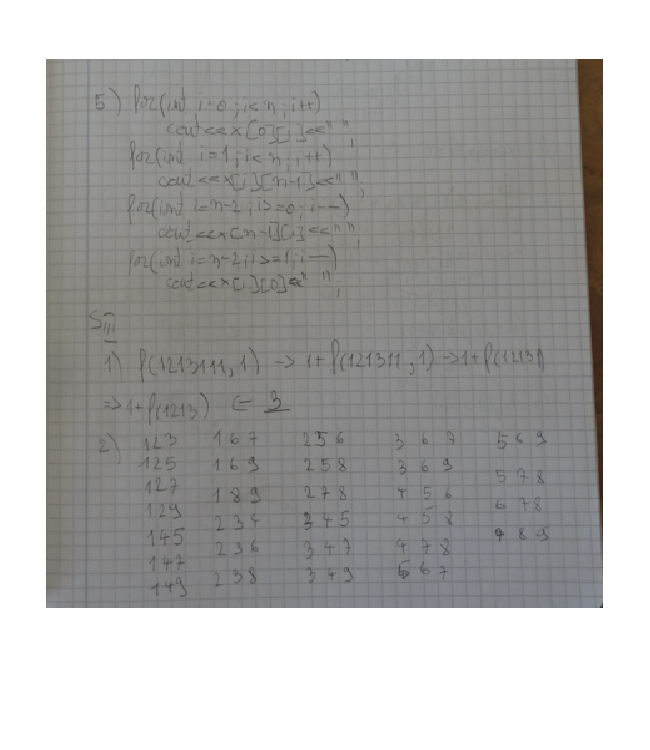 5) for(int i=0;i<n;i++)
cout<<x[0][i]<<" ";
for(int i=1;i<n;i++)
cout<<x[i][n-1]<<" ";
for(int i=n-2;i>=0;i--)
cout<<x[n-1][i]<<" ";
for(int i=n-2;i>=1;i--)
cout<<x[i][0]<<" ";
SIII
1) f(1213111,1) -> 1+f(121311,1) -> 1+f(12131)
=> 1+f(1213) <- 3
2) 123 167 256 367 569
125 169 258 369 578
127 189 278 456 678
129 234 345 458 789
145 236 347 478
147 238 349 567
149